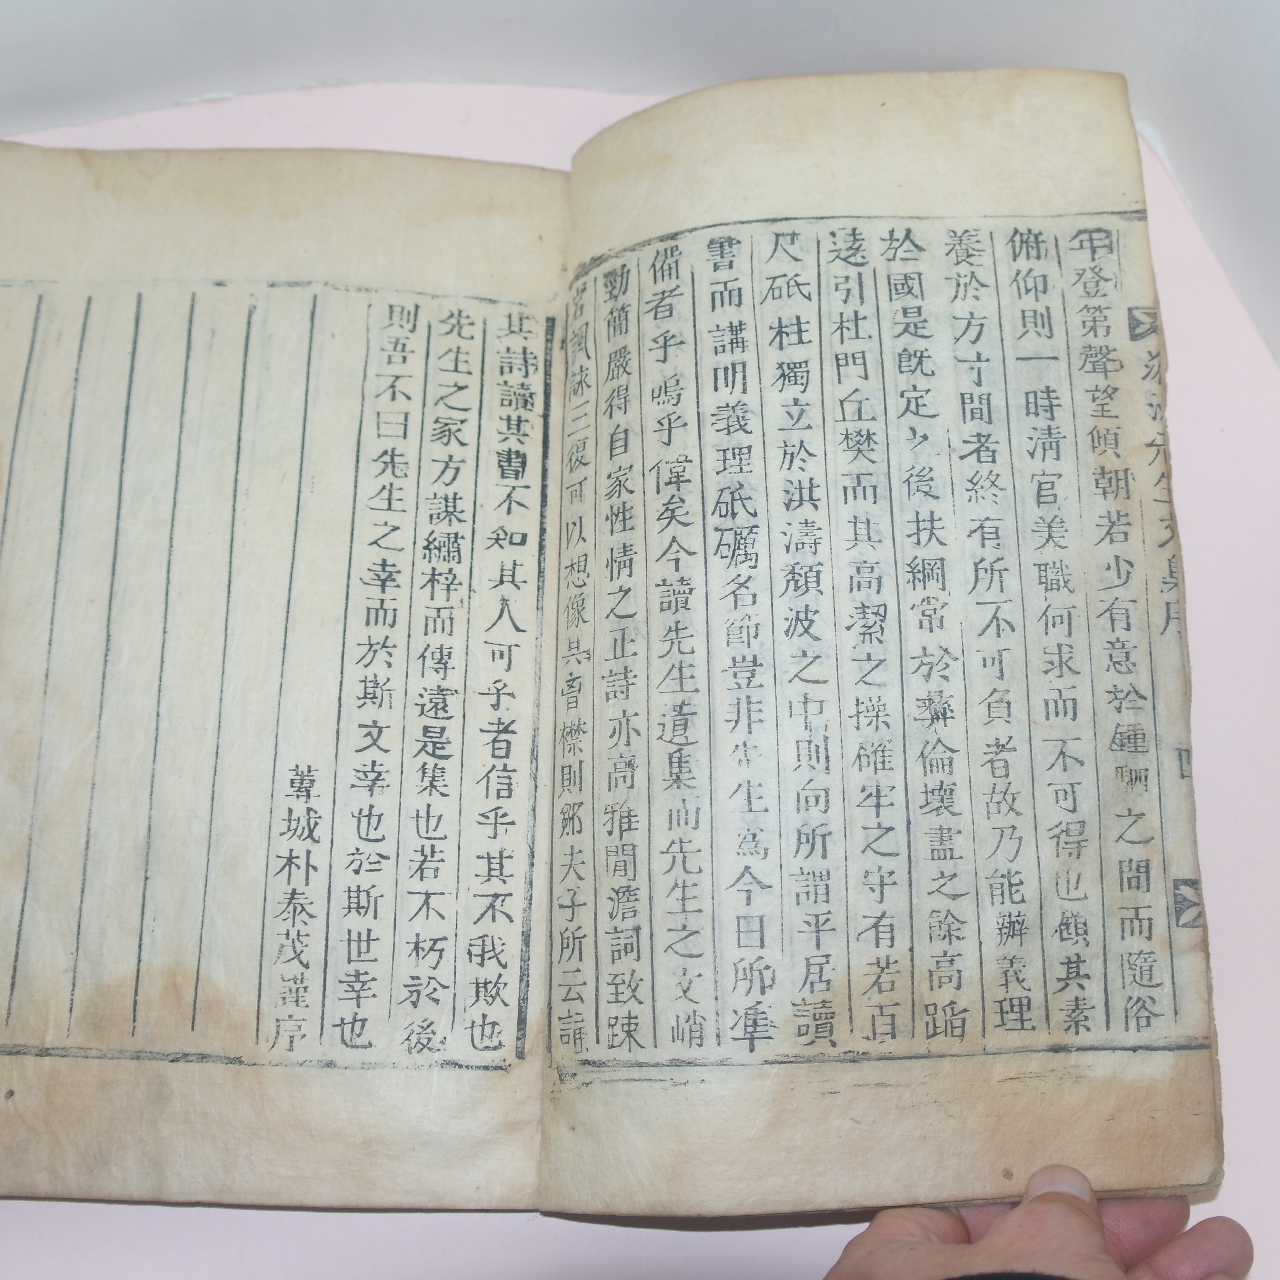 年登第聲望傾朝若少有意於鍾之間而隨俗
俯仰則一時淸官美職何求而不可得也顧其素
養於方寸間者終有所不可負者故乃能辦義理
於國是旣定之後扶綱常於彛倫壞盡之餘高蹈
遠引杜門丘樊而其高潔之操確牢之守有若百
尺砥柱獨立於洪濤頹波之中則向所謂平居讀
書而講明義理砥礪名節豈非先生爲今日所準
備者乎嗚乎偉矣今讀先生遺集而先生之文峭
勁簡嚴得自家性情之正詩亦高雅閒澹詞致踈
宕諷詠三復可以想像其音襟則鄒夫子所云誦
其詩讀其書不知其人可乎者信乎其不我欺也
先生之家方謀繡梓而傳遠是集也若不朽於後
則吾不曰先生之幸而於斯文幸也於斯世幸也
蓴城朴泰茂謹序
先生文集序
四